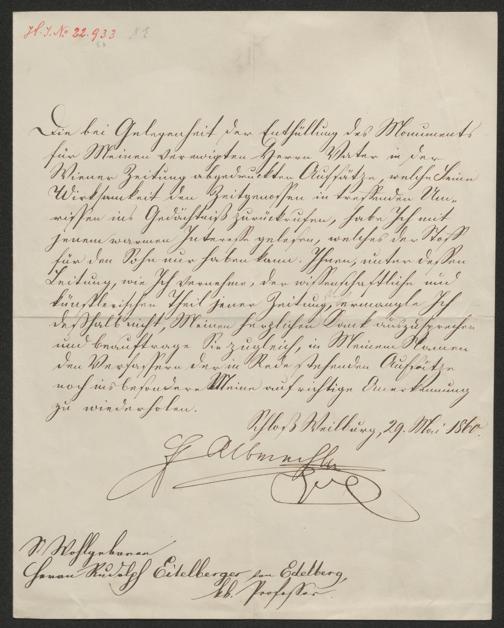 H. I. No 22.933
Die bei Gelegenheit der Enthüllung des Monuments
für Meinen verewigten Herrn Vater in der
Wiener Zeitung abgedruckten Aufsätze, welche Seine
Wirksamkeit den Zeitgenossen in treffenden Um-
rissen ins Gedächtniß zurückrufen, habe Ich mit
jenem warmen Interesse gelesen, welches der Stoff
für den Sohn nur haben kann. Ihnen, unter dessen
Leitung, wie Ich vernehme, der wissenschaftliche und
künstlerischen Theil jener Zeitung, ermangle Ich
deßhalb nicht, Meinen herzlichen Dank auszusprechen
und beauftrage Sie zugleich, in Meinem Namen
den Verfassern der in Rede stehenden Aufsätze
noch insbesondere Meine aufrichtige Anerkennung
zu wiederholen.
Schloß Weilburg, 29. Mai 1860.
Albrecht
Wohlgeboren
Herrn Rudolph Eitelberger von Edelberg,
kk. Professor.